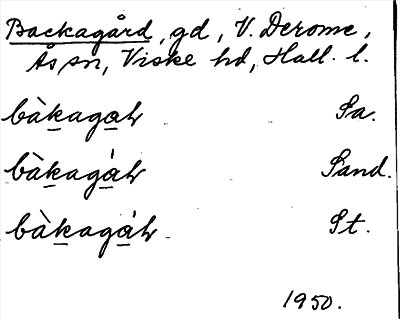 Backagård, gd, V. Derome,
Ås sn, Viske hd, Hall. l.
bàkagaɫr Sa.
bàkagáɫr Sand.
bàkagáɫr St.
1950.